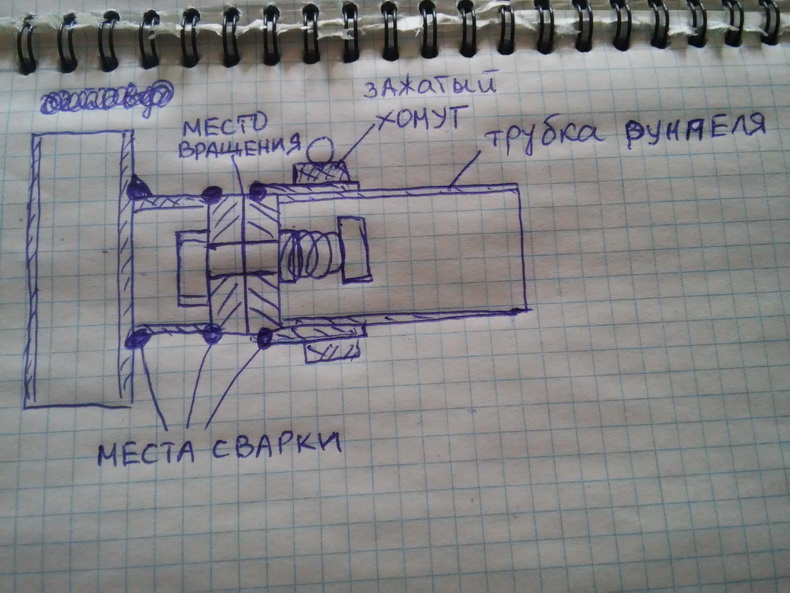 ЗАЖАТЫЙ
ХОМУТ
МЕСТО
ВРАЩЕНИЯ
трубка РУМПЕЛЯ
МЕСТА СВАРКИ